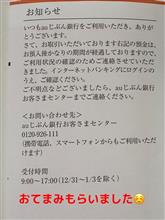 お知らせ
いつもauじぶん銀行をご利用いただき、ありが
とうございます。
さて、お取引いただいております右記の預金は、
お預入後かなりの期間が経過しておりますので、
ご利用状況の確認のためご連絡させていただ
きました。インターネットバンキングにログイン
のうえ、ご確認ください。
ご不明点などございましたら、auじぶん銀行
お客さまセンターまでご連絡ください。
<お問い合わせ先>
auじぶん銀行お客さまセンター
0120-926-111
(携帯電話、スマートフォンからもご利用いただ
けます)
受付時間
9:00~17:00(12/31~1/3を除く)
おてまみもらいました😊